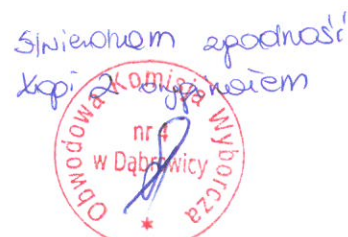 Stwierdzam zgodność
kopi z oryginałem
Obwodowa Komisja Wyborcza
nr 4
w Dąbrowicy